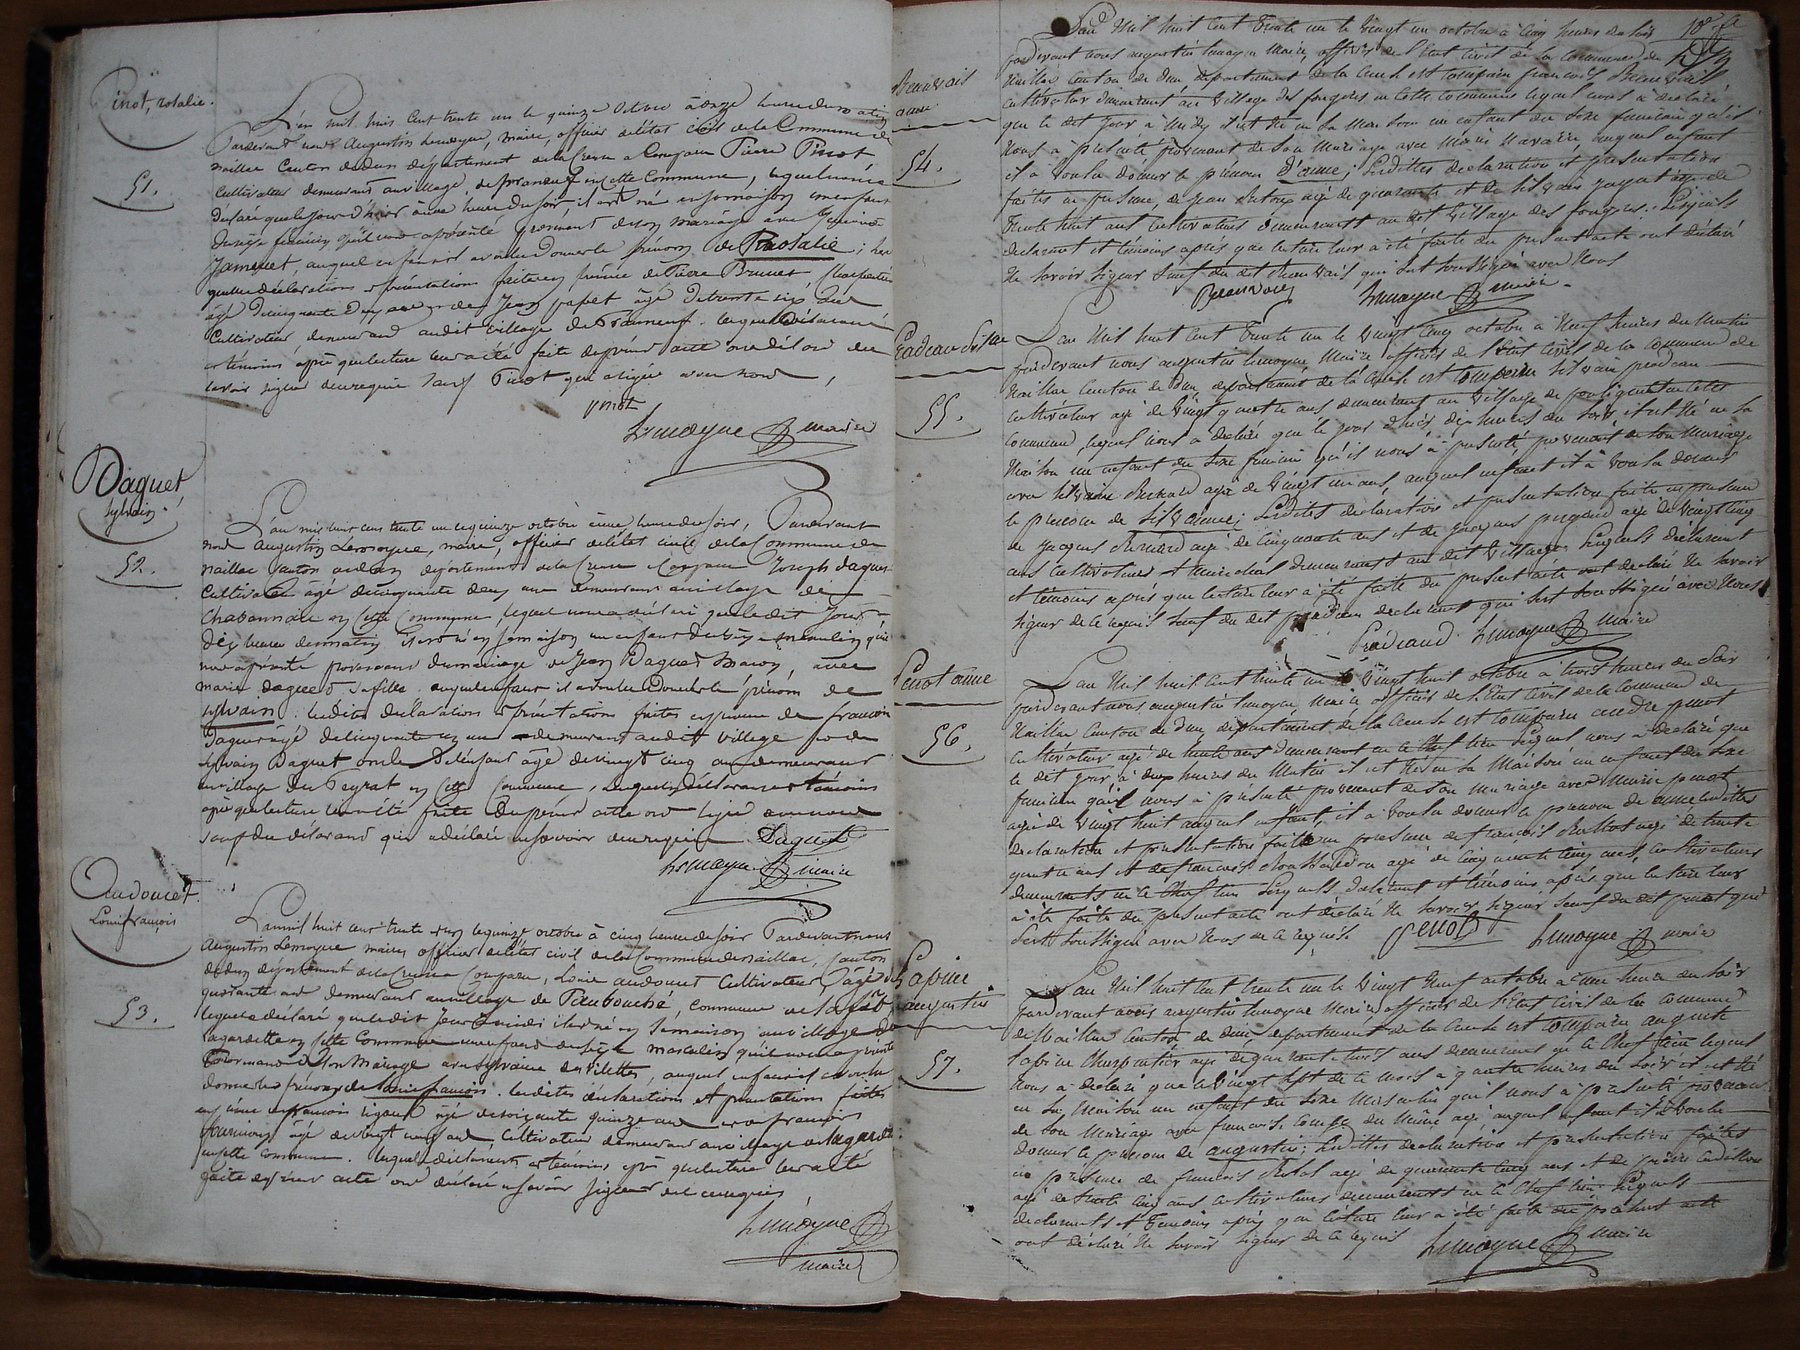 Pinot, rosalie.
51.
L'an mil huit Cent trente un le quinze octobre à onze heures du matin
Pardevant nous Augustin Lemoyne, maire, officier de l'état civil de la Commune de
naillac Canton de dun département de la Creuse a Comparu Pierre Pinot
Cultivateur demeurant au village de en cette Commune, lequel nous a
déclaré que le jour d'hier à une heure du soir, il est né en sa maison un enfant
du sexe féminin qu'il nous a présenté provenant de son mariage avec
Jamenet, auquel enfant il a voulu donner le prénom de Rosalie; les
quelles déclarations et présentations faites en présence de Pierre Brunet Charpentier
âgé de cinquante ans et de Jean papet âgé de trente six ans
Cultivateur, demeurant audit village de lesquels déclarant
et témoins après que lecture leur a été faite du présent acte ont déclaré ne
savoir signer de ce requis sauf Pinot qui a signé avec nous,
pinot
Lemoyne maire
Daguet
sylvain.
52.
L'an mil huit cent trente un le quinze octobre à une heure du soir, Pardevant
nous Augustin Lemoyne, maire, officier de l'état civil de la Commune de
naillac Canton de dun département de la Creuse a Comparu Joseph daguet
Cultivateur âgé de cinquante deux ans demeurant au village de
Chabannais en cette Commune, lequel nous a déclaré que le dit jour
dix heures du matin il est né en sa maison un enfant du sexe masculin qu'il
nous a présenté provenant du mariage de Jean Daguet avec
marie daguet sa fille auquel enfant il a voulu donner le prénom de
sylvain. lesdites déclarations et présentations faites en présence de françois
Daguet âgé de cinquante un ans demeurant audit village et de
sylvain Daguet oncle de l'enfant âgé de vingt cinq ans demeurant
au village du Peyrat en cette Commune, lesquels déclarant et témoins
après que lecture leur a été faite du présent acte ont signé avec nous
sauf du déclarant qui a déclaré ne savoir de ce requis Daguet
Lemoyne maire
Audoucet.
Louis françois
53.
L'an mil huit cent trente un le quinze octobre à cinq heures du soir Pardevant nous
Augustin Lemoyne maire officier de l'état civil de la Commune de naillac, Canton
de dun département de la Creuse a Comparu, Louis audoucet Cultivateur, âgé de
quarante ans demeurant au village de commune de lafat
lequel a déclaré que le dit jour à midi il est né en sa maison au village de
lagardette en cette Commune un enfant du sexe masculin qu'il nous a présenté
Provenant de son Mariage avec sylvaine desvilettes, auquel enfant il a voulu
donner les prénoms de Louis françois. lesdites déclarations et présentations faites
en présence de françois âgé de soixante quinze ans et de françois
âgé de vingt neuf ans Cultivateurs demeurant au village de lagardette
susdite Commune. lesquels déclarants et témoins après que lecture leur a été
faite du présent acte ont déclaré ne savoir signer de ce requis,
Lemoyne
maire
Beauvais
anne
54.
L'an Mil huit Cent Trente un le vingt un octobre à Cinq heures du soir
pardevant nous augustin Lemoyne Maire, officier de l'Etat civil de la Commune de
Naillac Canton de dun département de la Creuse est Comparu françois Beauvais
Cultivateur demeurant au village des fougères en cette Commune lequel nous a déclaré
que le dit jour à Midy il est né en sa Maison un enfant du sexe féminin qu'il
nous a présenté provenant de son Mariage avec Marie auquel enfant
il a voulu donner le prénom d'anne; lesdittes déclaration et présentation
faites en présence, de Jean âgé de quarante et de silvain âgé de
trente huit ans Cultivateurs demeurant au dit village des fougères. lesquels
déclarant et témoins après que lecture leur a été faite du présent acte ont déclaré
Ne savoir signer sauf du dit Beauvais qui s'est soussigné avec Nous
Beauvais Lemoyne maire
55.
L'an Mil huit Cent Trente un le vingt Cinq octobre à Neuf heures du Matin
pardevant nous augustin Lemoyne Maire officier de l'Etat Civil de la Commune de
Naillac Canton de dun département de la Creuse est Comparu silvain pradeau
Cultivateur âgé de vingt quatre ans demeurant au village de en cette
Commune lequel nous a déclaré que le jour d'hier dix heures du soir il est né en sa
Maison un enfant du sexe féminin qu'il nous a présenté provenant de son Mariage
avec silvaine Renard âgée de vingt un ans, auquel enfant il a voulu donner
le prénom de silvaine; lesdites déclaration et présentation faite en présence
de Jacques Renard âgé de Cinquante ans et de Jacques âgé de vingt cinq
ans Cultivateur et Maréchal demeurant au dit village lesquels déclarant
et témoins après que lecture leur a été faite du présent acte ont déclaré Ne savoir
signer de ce requis sauf du dit pradeau déclarant qui s'est soussigné avec Nous
Pradeaud Lemoyne Maire
Penot anne
56.
L'an Mil huit Cent trente un le vingt huit octobre à trois heures du soir
pardevant nous augustin Lemoyne, Maire officier de l'Etat Civil de la Commune de
Naillac Canton de dun département de la Creuse est Comparu andré penot
Cultivateur âgé de trente ans demeurant en ce Chef lieu lequel nous a déclaré que
le dit jour à deux heures du Matin il est Né en sa Maison un enfant du sexe
féminin qu'il nous a présenté provenant de son Mariage avec Marie penot
âgée de vingt huit auquel enfant, il a voulu donner le prénom de anne lesdittes
déclaration et présentation faites en présence de françois âgé de trente
quatre ans et de françois âgé de Cinquante Cinq ans, Cultivateurs
demeurants en ce Chef lieu lesquels déclarant et témoins, après que lecture leur
a été faite du présent acte ont déclaré Ne savoir signer sauf du dit penot qui
s'est soussigné avec Nous de ce requis Penot Lemoyne maire
Lapine
augustin
57.
L'an Mil huit Cent trente un le vingt Neuf octobre à une heure du soir
pardevant nous augustin Lemoyne Maire officier de l'Etat Civil de la Commune
de Naillac Canton de dun, département de la Creuse est Comparu auguste
lapine Charpentier âgé de quarante trois ans demeurant en ce Chef lieu lequel
Nous a déclaré que le vingt sept de ce Mois à quatre heures du soir il est Né
en sa Maison un enfant du sexe Masculin qu'il nous a présenté provenant
de son Mariage avec françoise du Même âge, auquel enfant il a voulu
donner le prénom de augustin; lesdittes déclaration et présentation faites
en présence de françois âgé de quarante cinq ans et de
âgé de trente cinq ans Cultivateurs demeurants en ce Chef lieu lesquels
déclarants et témoins après que lecture leur a été faite du présent acte
ont déclaré Ne savoir signer de ce requis Lemoyne Maire